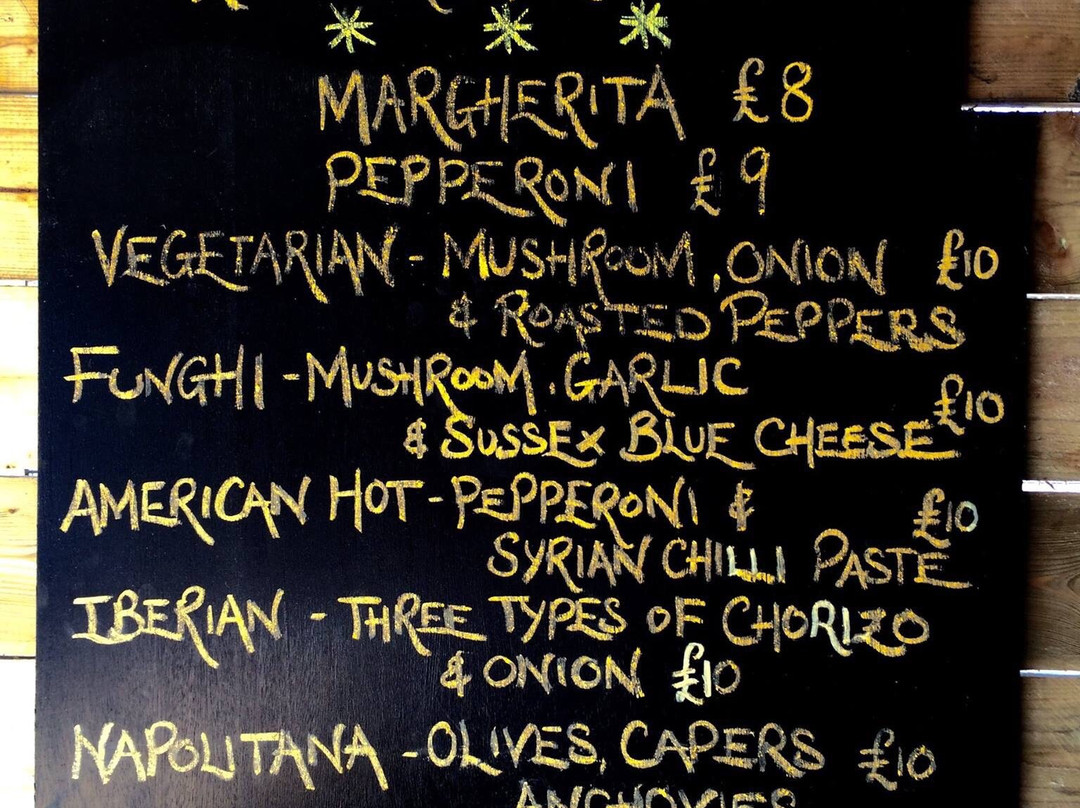 MARGHERITA £8
PEPPERONI £9
VEGETARIAN - MUSHROOM, ONION £10
& ROASTED PEPPERS
FUNGHI - MUSHROOM. GARLIC
& SUSSEX BLUE CHEESE £10
AMERICAN HOT - PEPPERONI & £10
SYRIAN CHILLI PASTE
IBERIAN - THREE TYPES OF CHORIZO
& ONION £10
NAPOLITANA - OLIVES, CAPERS £10
ANCHOVIES